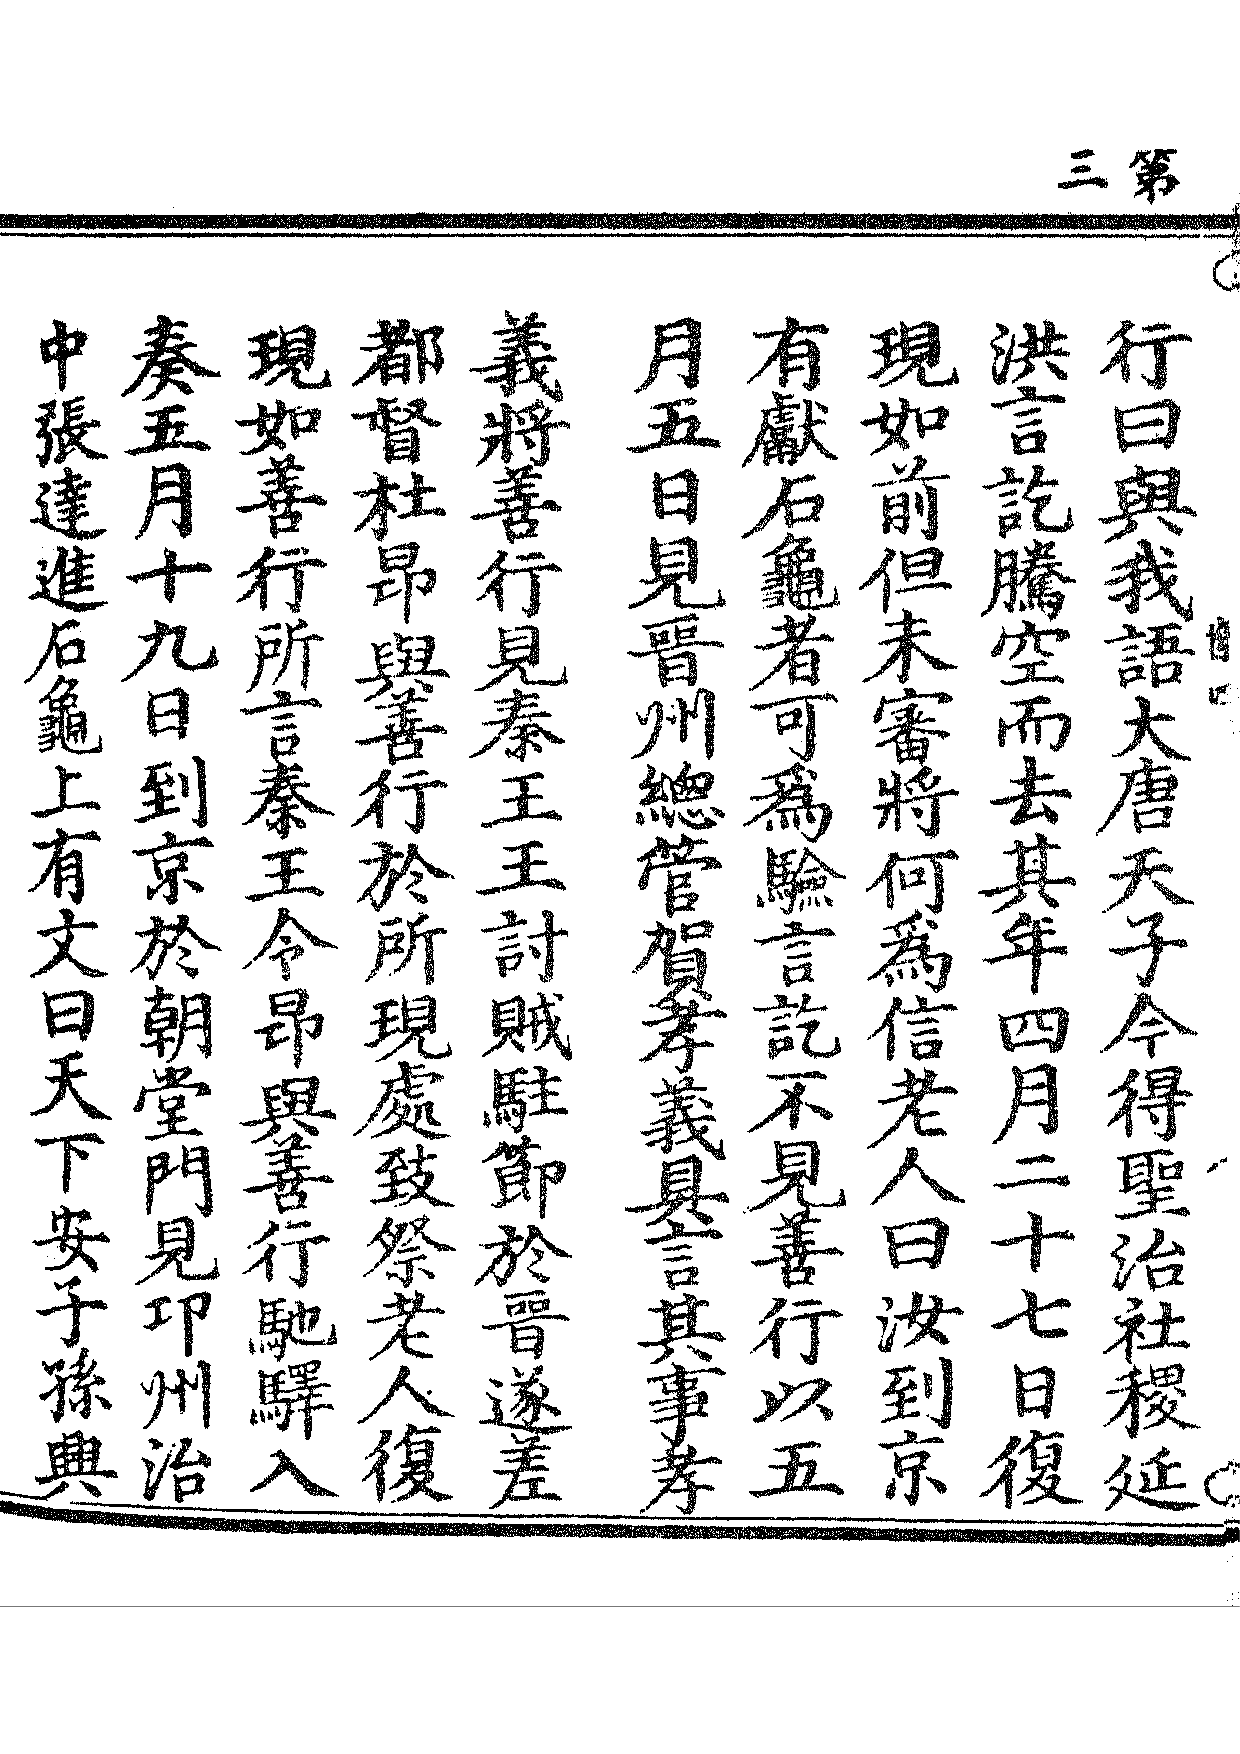 第三
行曰與我語大唐天子今得聖治社稷延
洪言訖騰空而去其年四月二十七日復
現如前但未審將何爲信老人曰汝到京
有獻石龜者可爲驗言訖不見善行以五
月五日見晉州總管賀孝義具言其事孝
義將善行見秦王王討賊駐節於晉遂差
都督杜昂與善行於所現處致祭老人復
現如善行所言秦王令昂與善行馳驛入
奏五月十九日到京於朝堂門見卭州治
中張達進石龜上有文曰天下安子孫興